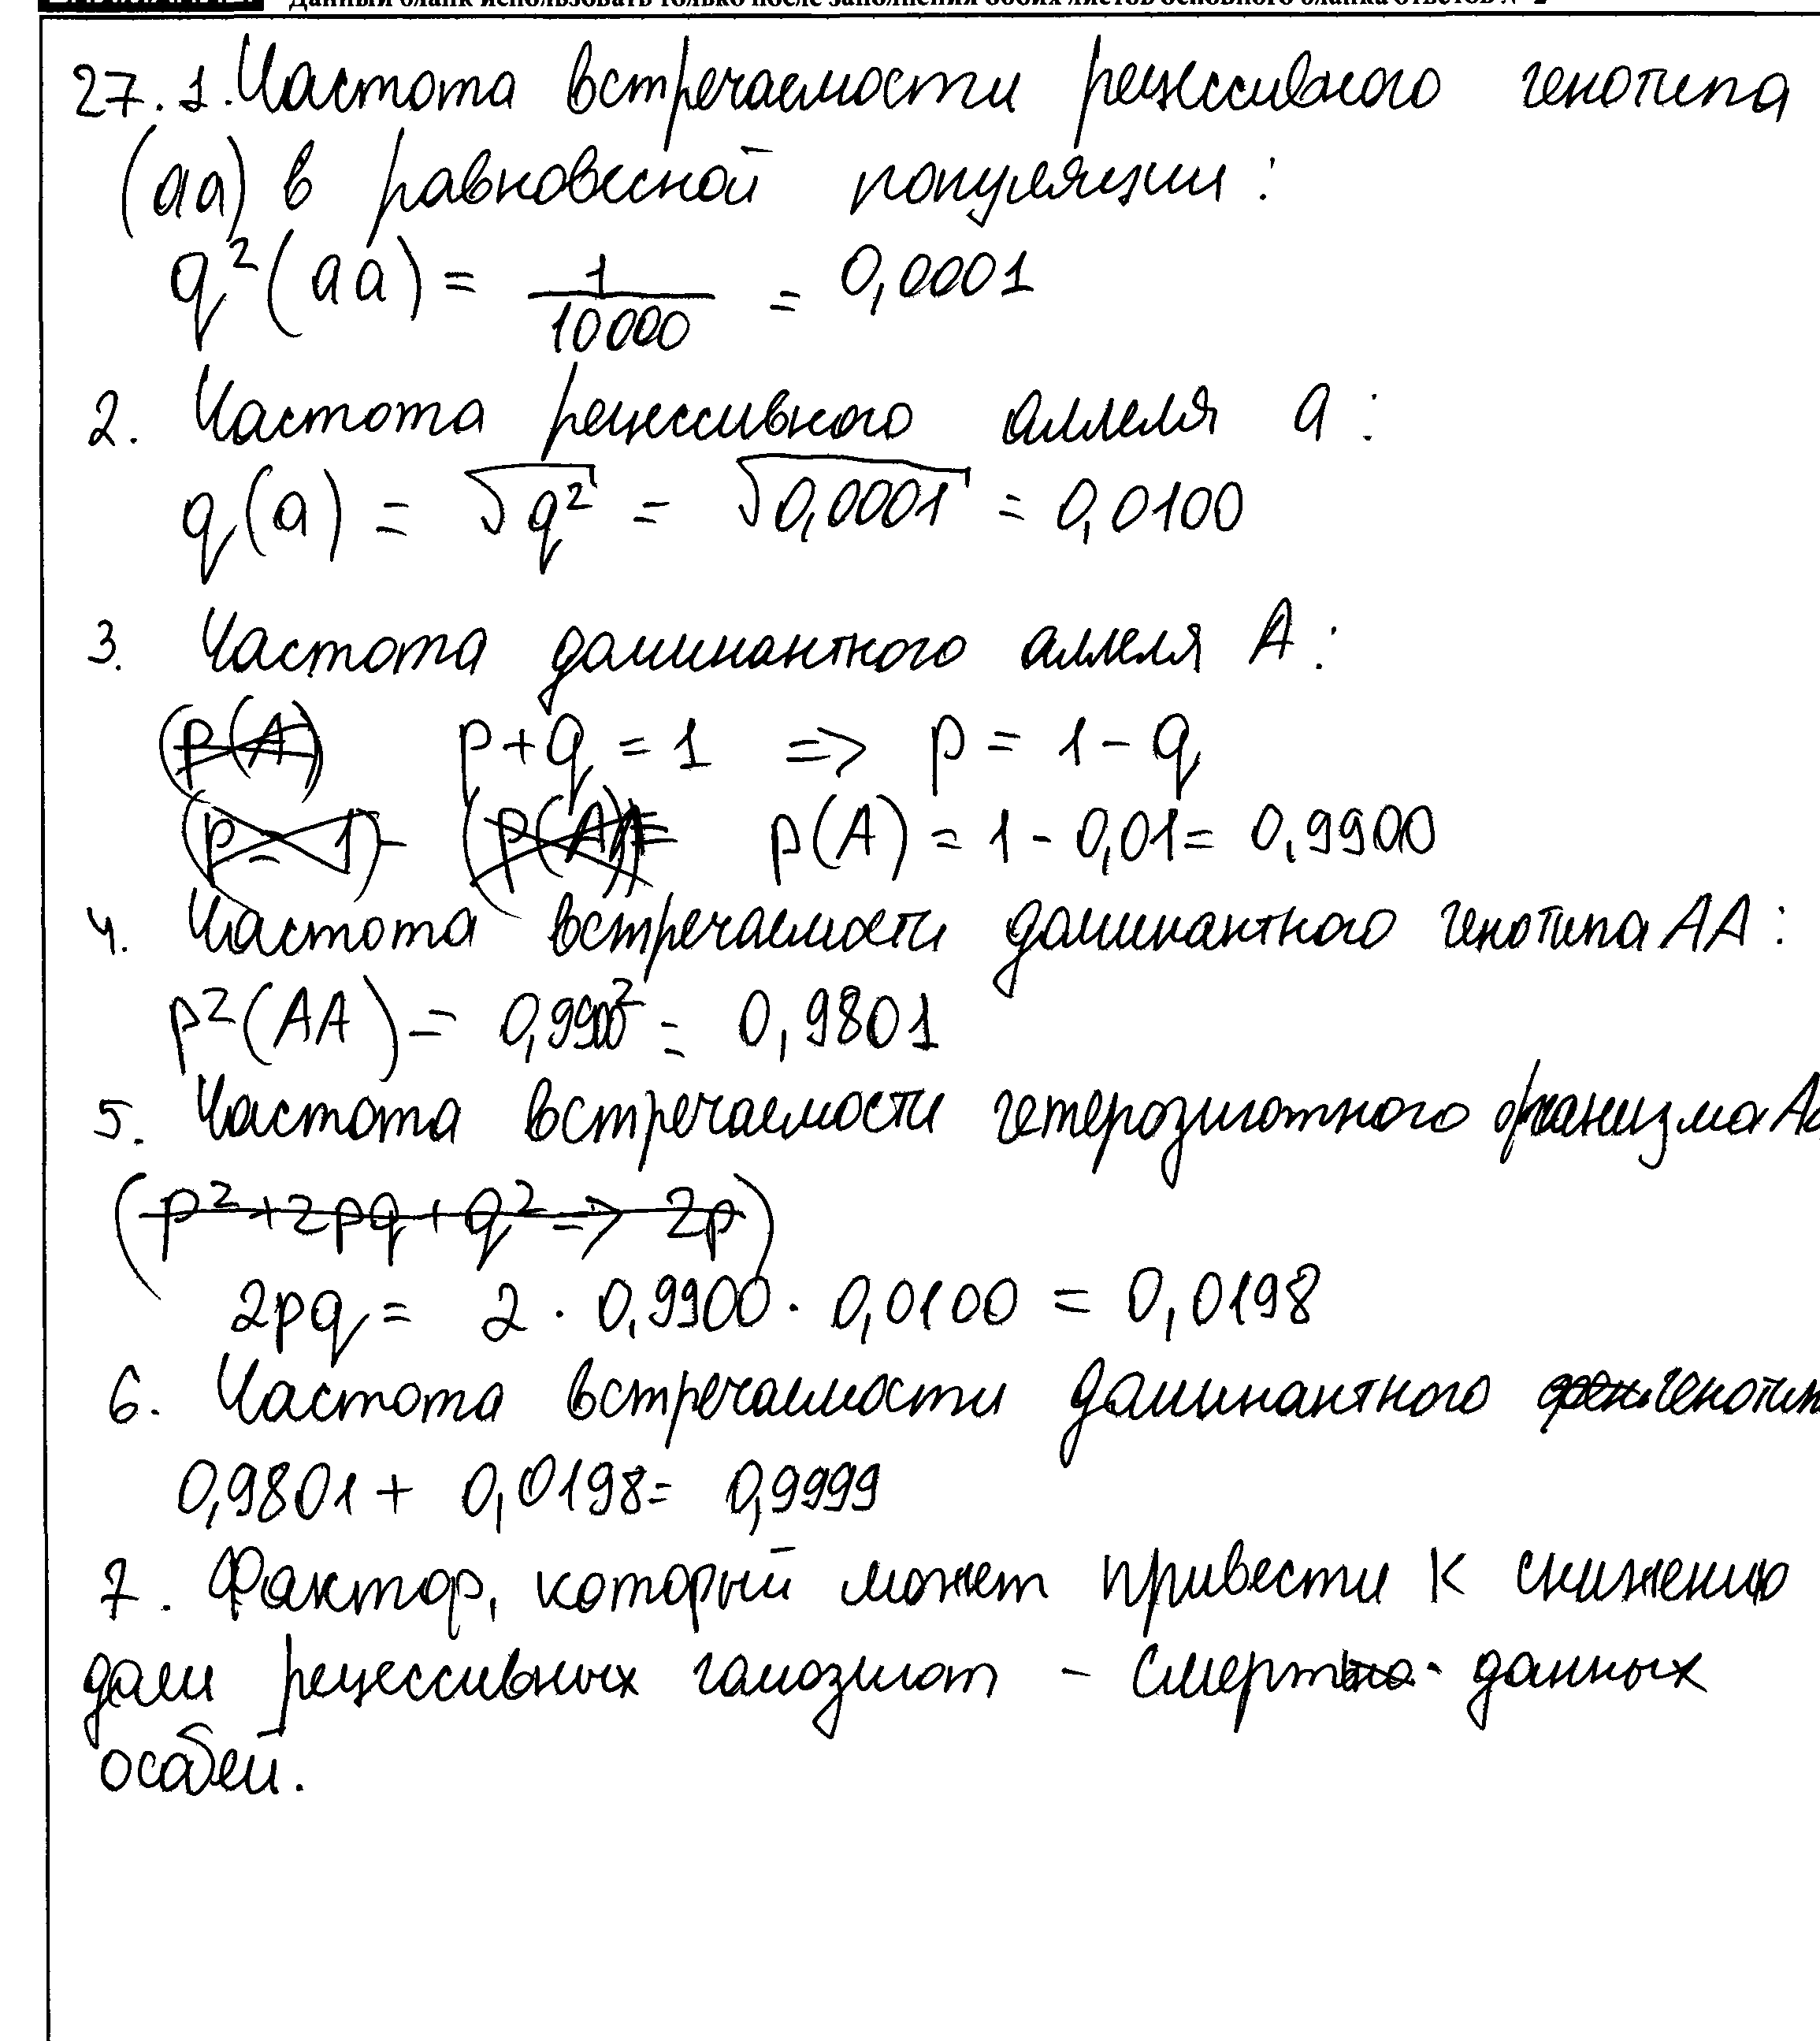 Данный бланк использовать только после заполнения обоих листов основного бланка ответов № 2
27. 1. Частота встречаемости рецессивного генотипа
(аа) в равновесной популяции:
q²(аа) = 1/10000 = 0,0001
2. Частота рецессивного аллеля а:
q(а) = √q² = √0,0001 = 0,0100
3. Частота доминантного аллеля А:
(p(A)) p+q = 1 => p = 1 - q
(p = 1) - (p(A)= p(A) = 1 - 0,01 = 0,9900
4. Частота встречаемости доминантного генотипа АА:
p²(АА) = 0,9900² = 0,9801
5. Частота встречаемости гетерозиготного организма Аа
(p² + 2pq + q² => 2p)
2pq = 2 · 0,9900 · 0,0100 = 0,0198
6. Частота встречаемости доминантного фен. генотип
0,9801 + 0,0198 = 0,9999
7. Фактор, который может привести к снижению
доли рецессивных гомозигот - смерть данных
особей.